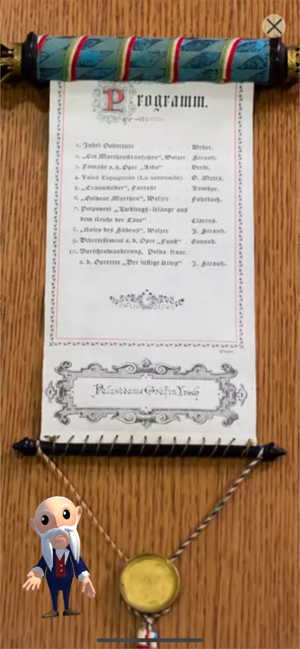 Programm.
1. Jubel-Ouverture Weber.
2. „Ein Myrthensträußchen“, Walzer Strauß.
3. Fantasie a. d. Oper „Aida“ Verdi.
4. Valse Espagnole (La serenade) O. Metra.
5. „Traumbilder“, Fantasie Lumbye.
6. „Goldene Myrthen“, Walzer Fahrbach.
7. Potpourri „Lieblings-Klänge aus
dem Reiche der Töne“
8. „Rosen des Südens“, Walzer J. Strauß.
9. Divertissement a. d. Oper „Faust“ Gounod.
10. Burschenwanderung, Polka franc.
a. d. Operette „Der lustige Krieg“ J. Strauß.
Palastdame Gräfin